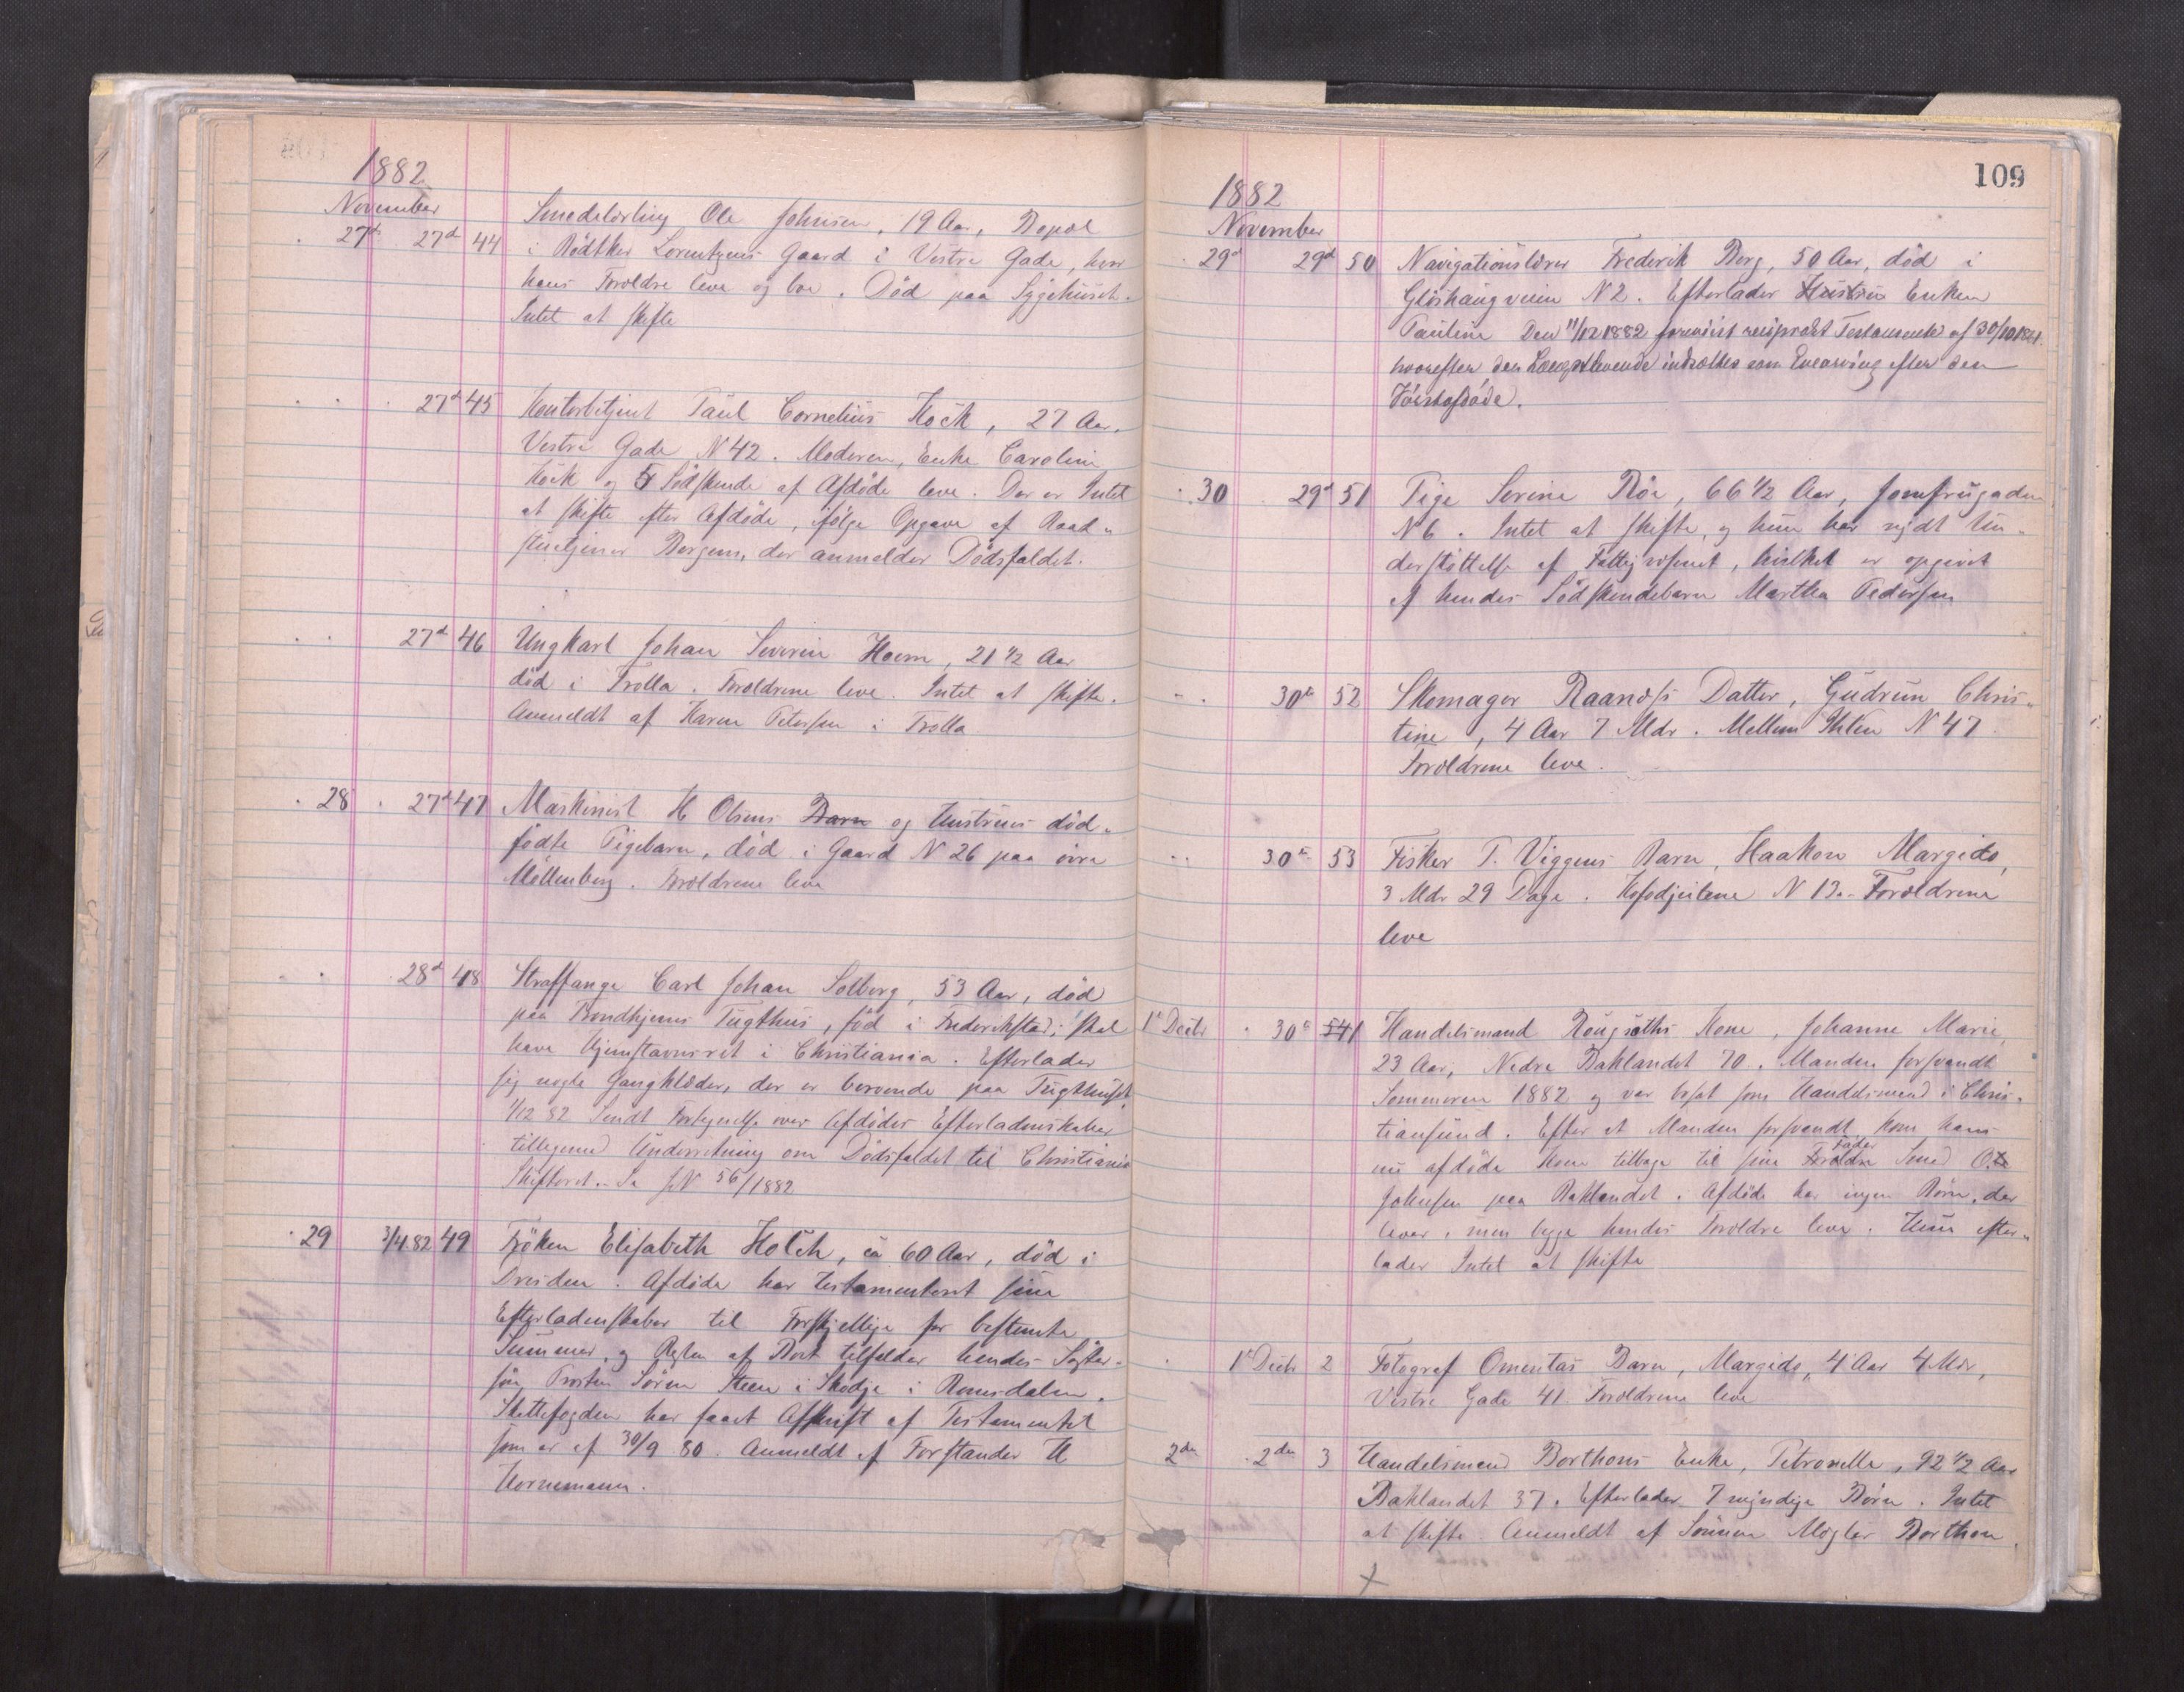 1882
November
27d 27d 44 Smedelærling Ole Johnsen, 19 Aar, Bopæl
i Bödtker Lorentzens Gaard i Vestre Gade, hvor
hans Forældre leve og boe. Död paa Sygehuset.
Intet at skifte
27d 45 Kontorbetjent Paul Cornelius Kock, 27 Aar,
Vestre Gade N 42. Moderen, Enke Caroline
Kock og Södskende af Afdöde leve. Der er Intet
at skifte efter Afdöde, ifölge Opgave af Raad-
stuetjener Bergem, der anmelder Dödsfaldet.
27d 46 Ungkarl Johan Severin Hoem, 21 1/2 Aar
död i Trolla. Forældrene leve. Intet at skifte.
Anmeldt af Karen Petersen i Trolla
28 27d 47 Maskinist H Olsens Barn og Hustrues död-
födte Pigebarn, död i Gaard N 26 paa övre
Möllenberg. Forældrene leve
28d 48 Straffange Carl Johan Solberg, 53 Aar, död
paa Trondhjems Tugthus, föd i Frederikstad; skal
have Hjemstavnsret i Christiania. Efterlader
sig nogle Gangklæder, der er beroende paa Tugthuset.
1/12 82 Sendt Fortegnelse over Afdödes Efterladenskaber
tilligemed Underretning om Dödsfaldet til Christiania
Skifteret. Se N 56/1882
29 3/4.82 49 Fröken Elisabeth Holck, ca 60 Aar, död i
Dresden. Afdöde har testamenteret sine
Efterladenskaber til Forskjellige for bestemte
Summer, og Resten af Boet tilfalder hendes Söster-
sön, Provsten Sören Steen i Skodje i Romsdalen.
Skiftefogden har faaet Afskrift af Testamentet
som er af 30/9 80. Anmeldt af Forstander H
Hornemann.
109
1882
November
29d 29d 50 Navigationslærer Frederik Berg, 50 Aar, död i
Glöshaugveien N 2. Efterlader Hustrue Enken
Pauline Den 11/12 1882 forevist reciprokt Testamente af 30/10
hvorefter den Længstlevende indsættes som Enearving efter den
Förstafdöde.
30 29d 51 Pige Serine Röe, 66 1/2 Aar, Jomfrugaden
N 6. Intet at skifte, og hun har nydt Un-
derstöttelse af Fattigvæsenet, hvilket er opgivet
af hendes Södskendebarn Martha Pedersen
30te 52 Skomager Raanæs's Datter, Gudrun Chris-
tine, 4 Aar 7 Mdr. Mellem Ihlen N 47.
Forældrene leve.
30te 53 Fisker T. Viggens Barn, Haakon Margido,
3 Mdr 29 Dage. N 13. Forældrene
leve
1te Decbr 30te 54 1 Handelsmand Rougsæths Kone, Johanne Marie,
23 Aar, Nedre Baklandet 70. Manden forsvandt
Sommeren 1882 og var bosat som Handelsmand i Chris-
tiansund. Efter at Manden forsvandt, kom hans
nu afdöde Kone tilbage til sine Forældre Fader Smed O.
Johnsen paa Baklandet. Afdöde har ingen Börn, der
lever, men begge hendes Forældre leve. Hun efter-
lader Intet at skifte
1te Decbr 2 Fotograf Omentas Barn, Margido, 4 Aar 4 Mdr,
Vestre Gade 41 Forældrene leve
2den 2den 3 Handelsmand Borthens Enke, Petronelle, 92 1/2 Aar
Baklandet 37. Efterlader 7 myndige Börn. Intet
at skifte. Anmeldt af Sönnen Mægler Borthen.